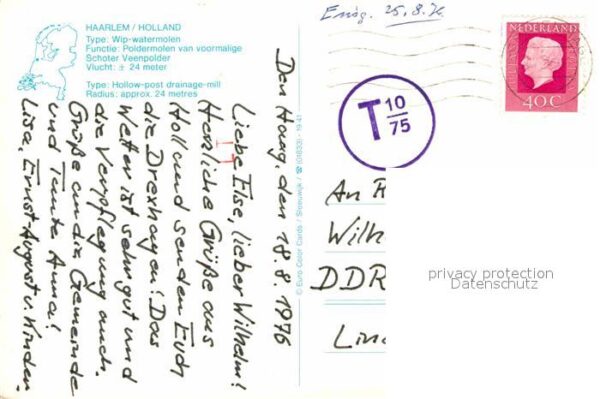 HAARLEM / HOLLAND
Type: Wip-watermolen
Functie: Poldermolen van voormalige
Schoter Veenpolder
Vlucht: ± 24 meter
Type: Hollow-post drainage-mill
Radius: approx. 24 metres
Den Haag, den 18.8.1976
Liebe Else, lieber Wilhelm!
Herzliche Grüße aus
Holland senden Euch
die Drexhagen! Das
Wetter ist sehr gut und
die Verpflegung auch.
Grüße an die Gemeinde
und Tante Anna!
Lisa, Ernst-August u. Kinder.
© Euro-Color Cards / Sleeuwijk / ☎ (01833) - 19 41
25.8.76
NEDERLAND
40C
T 10/75
An
Wilh
DDR
Lin
privacy protection
Datenschutz